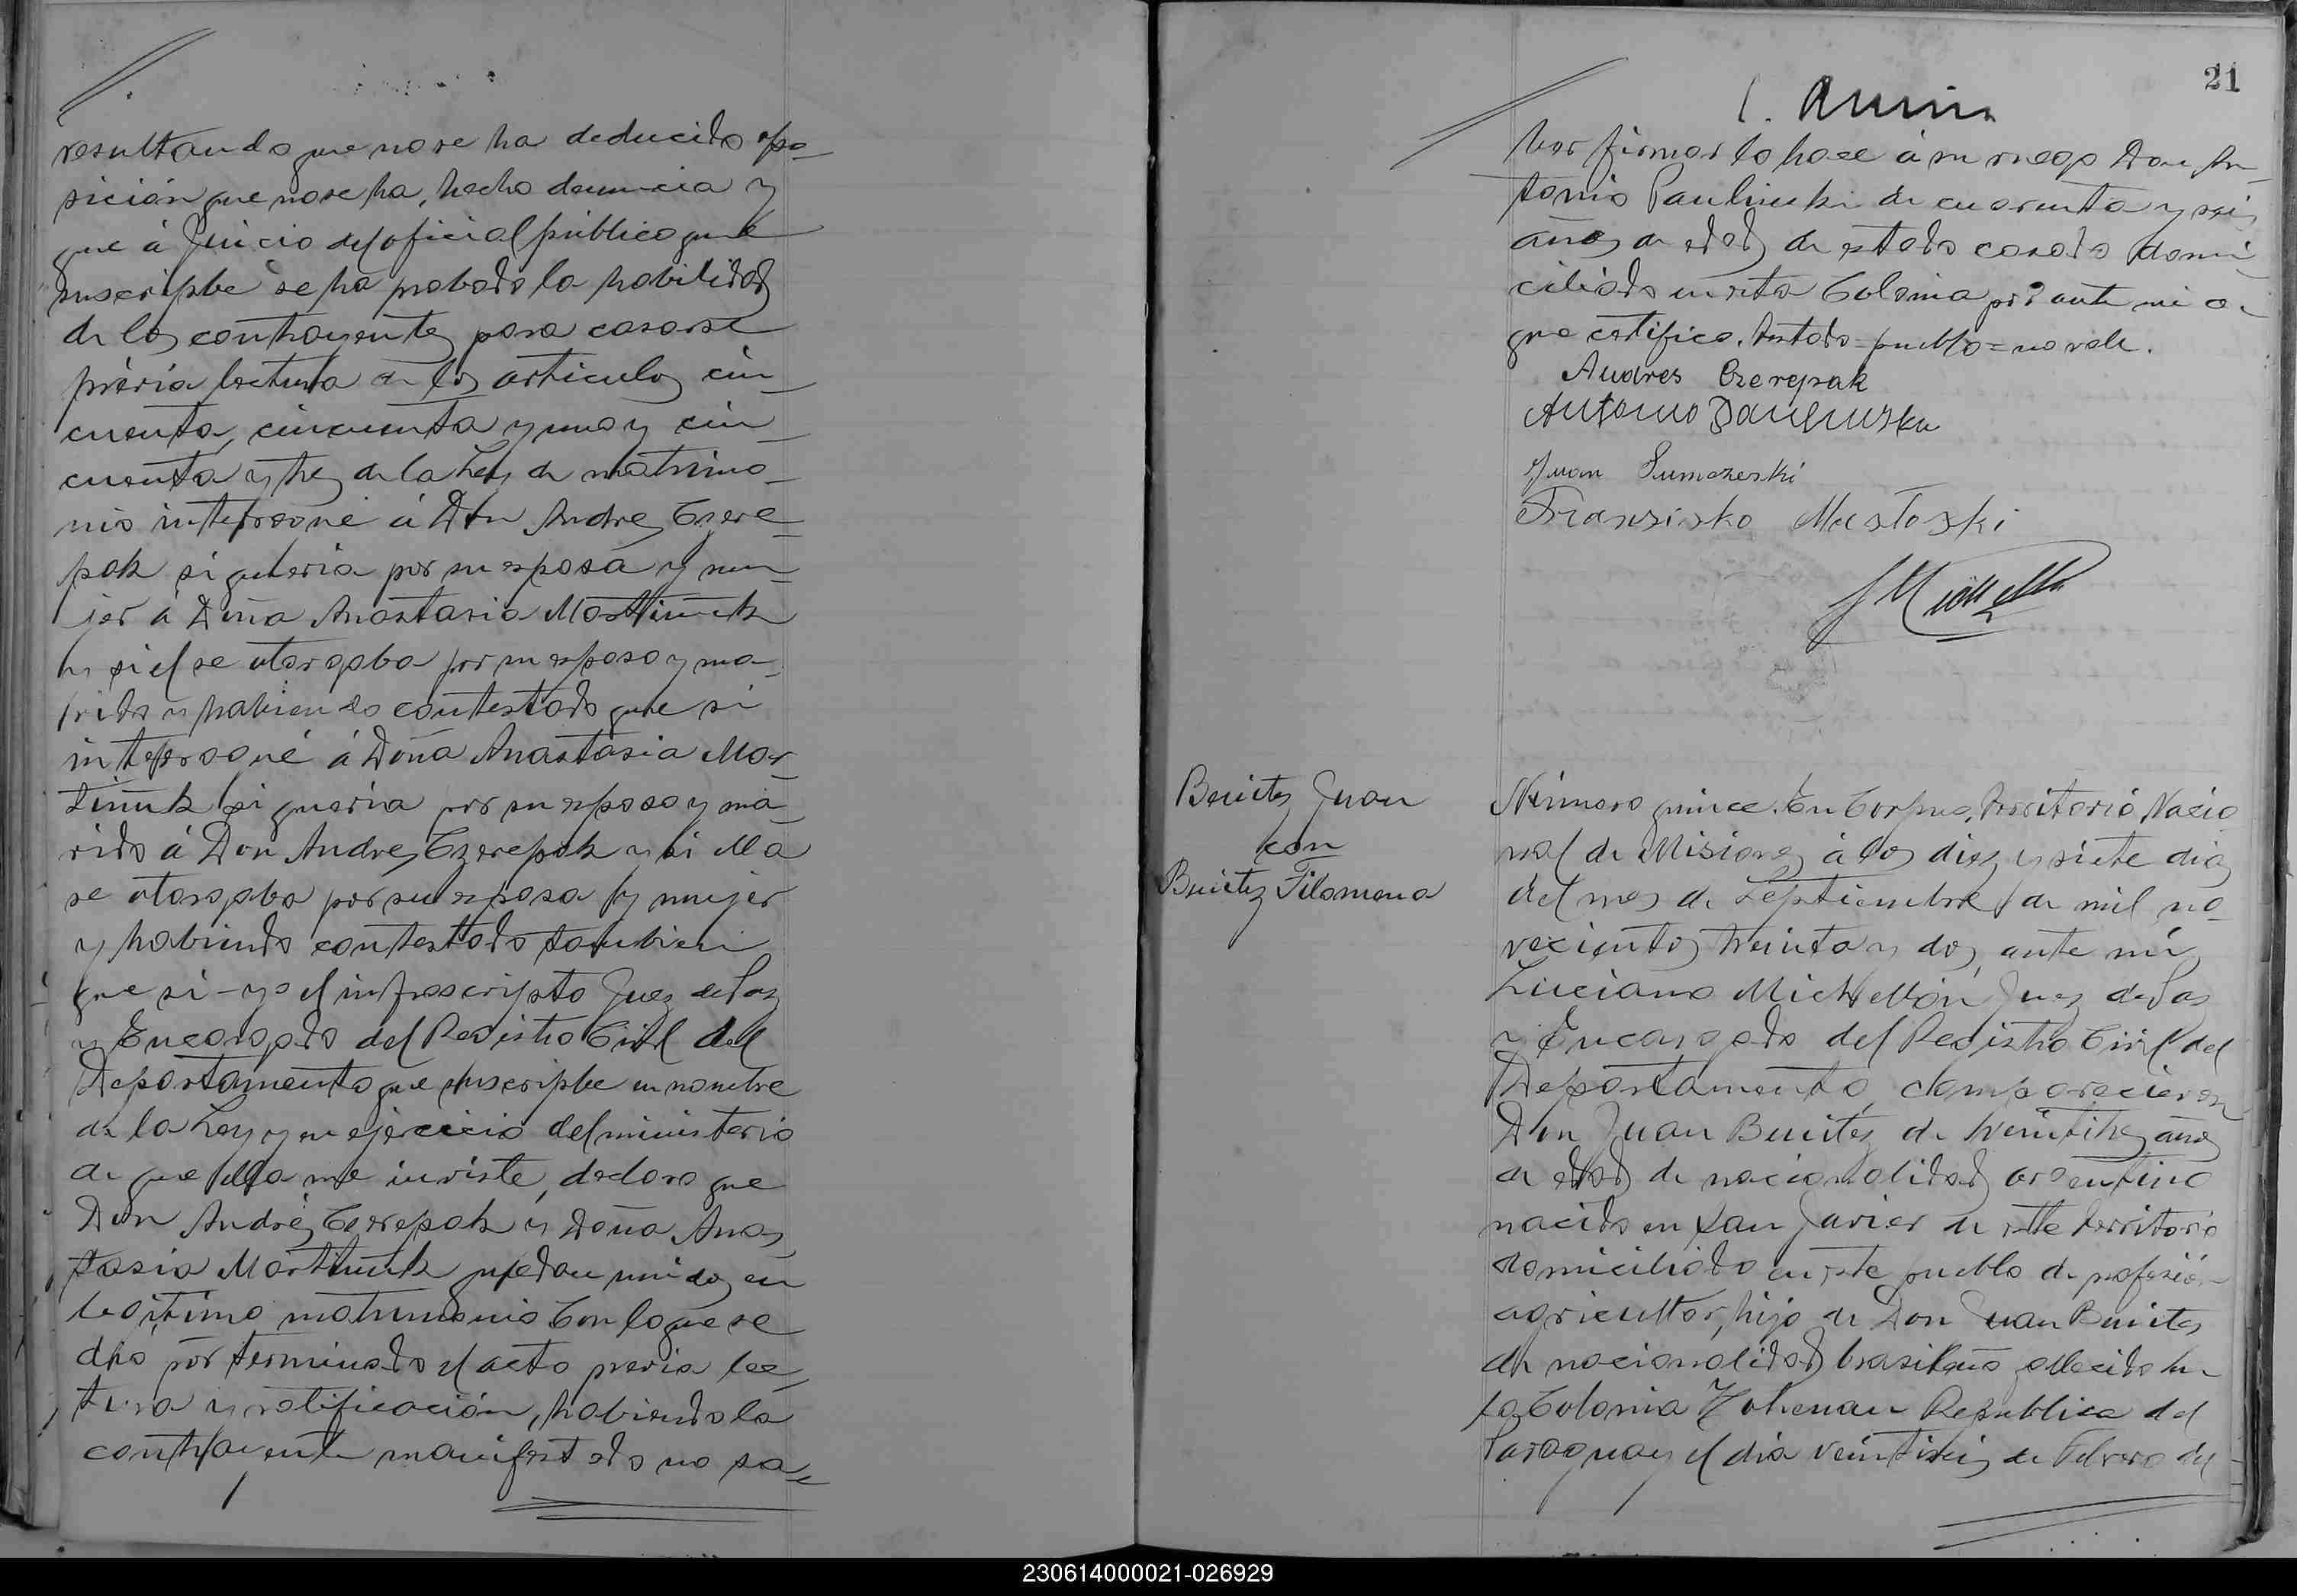 resultando que no se ha deducido opo-
sición que no se ha, hecho denuncia y
que á Juicio del oficial público que
suscripbe se ha probado la habilidad
de los contrayentes para casarse
prévia lectura de los articulos cin-
cuenta, cincuenta y uno y cin-
cuenta y tres de la Ley de matrimo-
nio interrogué á Don Andres Czere-
pak si queria por su esposa y mu-
jer á Doña Anastasia Martiniuk
y si el se otorgaba por su esposo y ma-
rido y habiendo contestado que si
interrogué á Doña Anastasia Mar-
tiniuk si queria por su esposo y ma-
rido á Don Andres Czerepak y si ella
se otorgaba por su esposa y mujer
y habiendo contestado tambien
que si - yo el infrascripto Juez de Paz
y Encargado del Registro Civil del
Departamento que suscripbe en nombre
de la Ley y en ejercicio del ministerio
de que ella me inviste, declaro que
Don Andrés Czerepak y Doña Anas-
tasia Martiniuk quedan unidos en
legítimo matrimonio Con lo que se
dió por terminado el acto previa lec-
tura y ratificación, habiendo la
contrayente manifestado no sa-
21
ber firmar lo hace á su ruego Don An-
tonio Paulinski de cuarenta y seis
años de edad de estado casado domi-
ciliado en esta Colonia por ante mi de
que certifico. Testado = pueblo = no vale.
Andres Czerepak
Antonio Paulinski
Juan
Fransisko
Benites Juan
con
Benitez Filomena
Número quince. En Corpus, Territorio Nacio
nal de Misiones á los diez y siete dias
del mes de Septiembre de mil no-
vecientos treinta y dos, ante mi
Luciano Michellón Juez de Paz
y Encargado del Registro Civil del
Departamento, comparecieron
Don Juan Benites de veintitres años
de edad de nacionalidad argentino
nacido en San Javier de este territorio
domiciliado en este pueblo de profesión
agricultor, hijo de Don Juan Benites
de nacionalidad brasileño fallecido en
la Colonia Hohenau Republica del
Paraguay el dia veintiseis de Febrero del
230614000021-026929